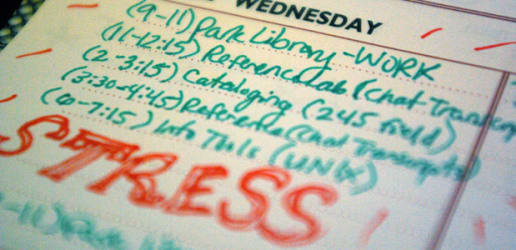 WEDNESDAY
(9-11) Park Library - WORK
(11-12:15) Reference Lab (Chat
(2-3:15) Cataloging (245 field)
(3:30-4:45) Reference (Chat Transcripts)
(6-7:15) Info This (UNIX)
STRESS
-11) Park